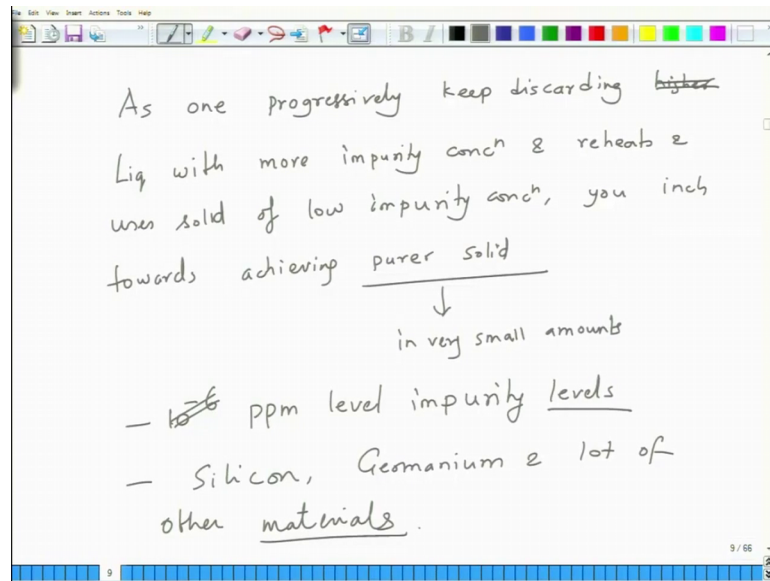 File Edit View Insert Actions Tools Help
As one progressively keep discarding higher
Liq with more impurity concn & reheats &
uses solid of low impurity concn, you inch
towards achieving purer solid
in very small amounts
- 10-6 ppm level impurity levels
- Silicon, Geomanium & lot of
other materials.
9 / 66
9